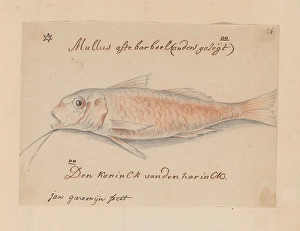 24.
Mullus ofte barbeel (anders geseijt)
Den koninck van den harinck.
jan garemijn fecit